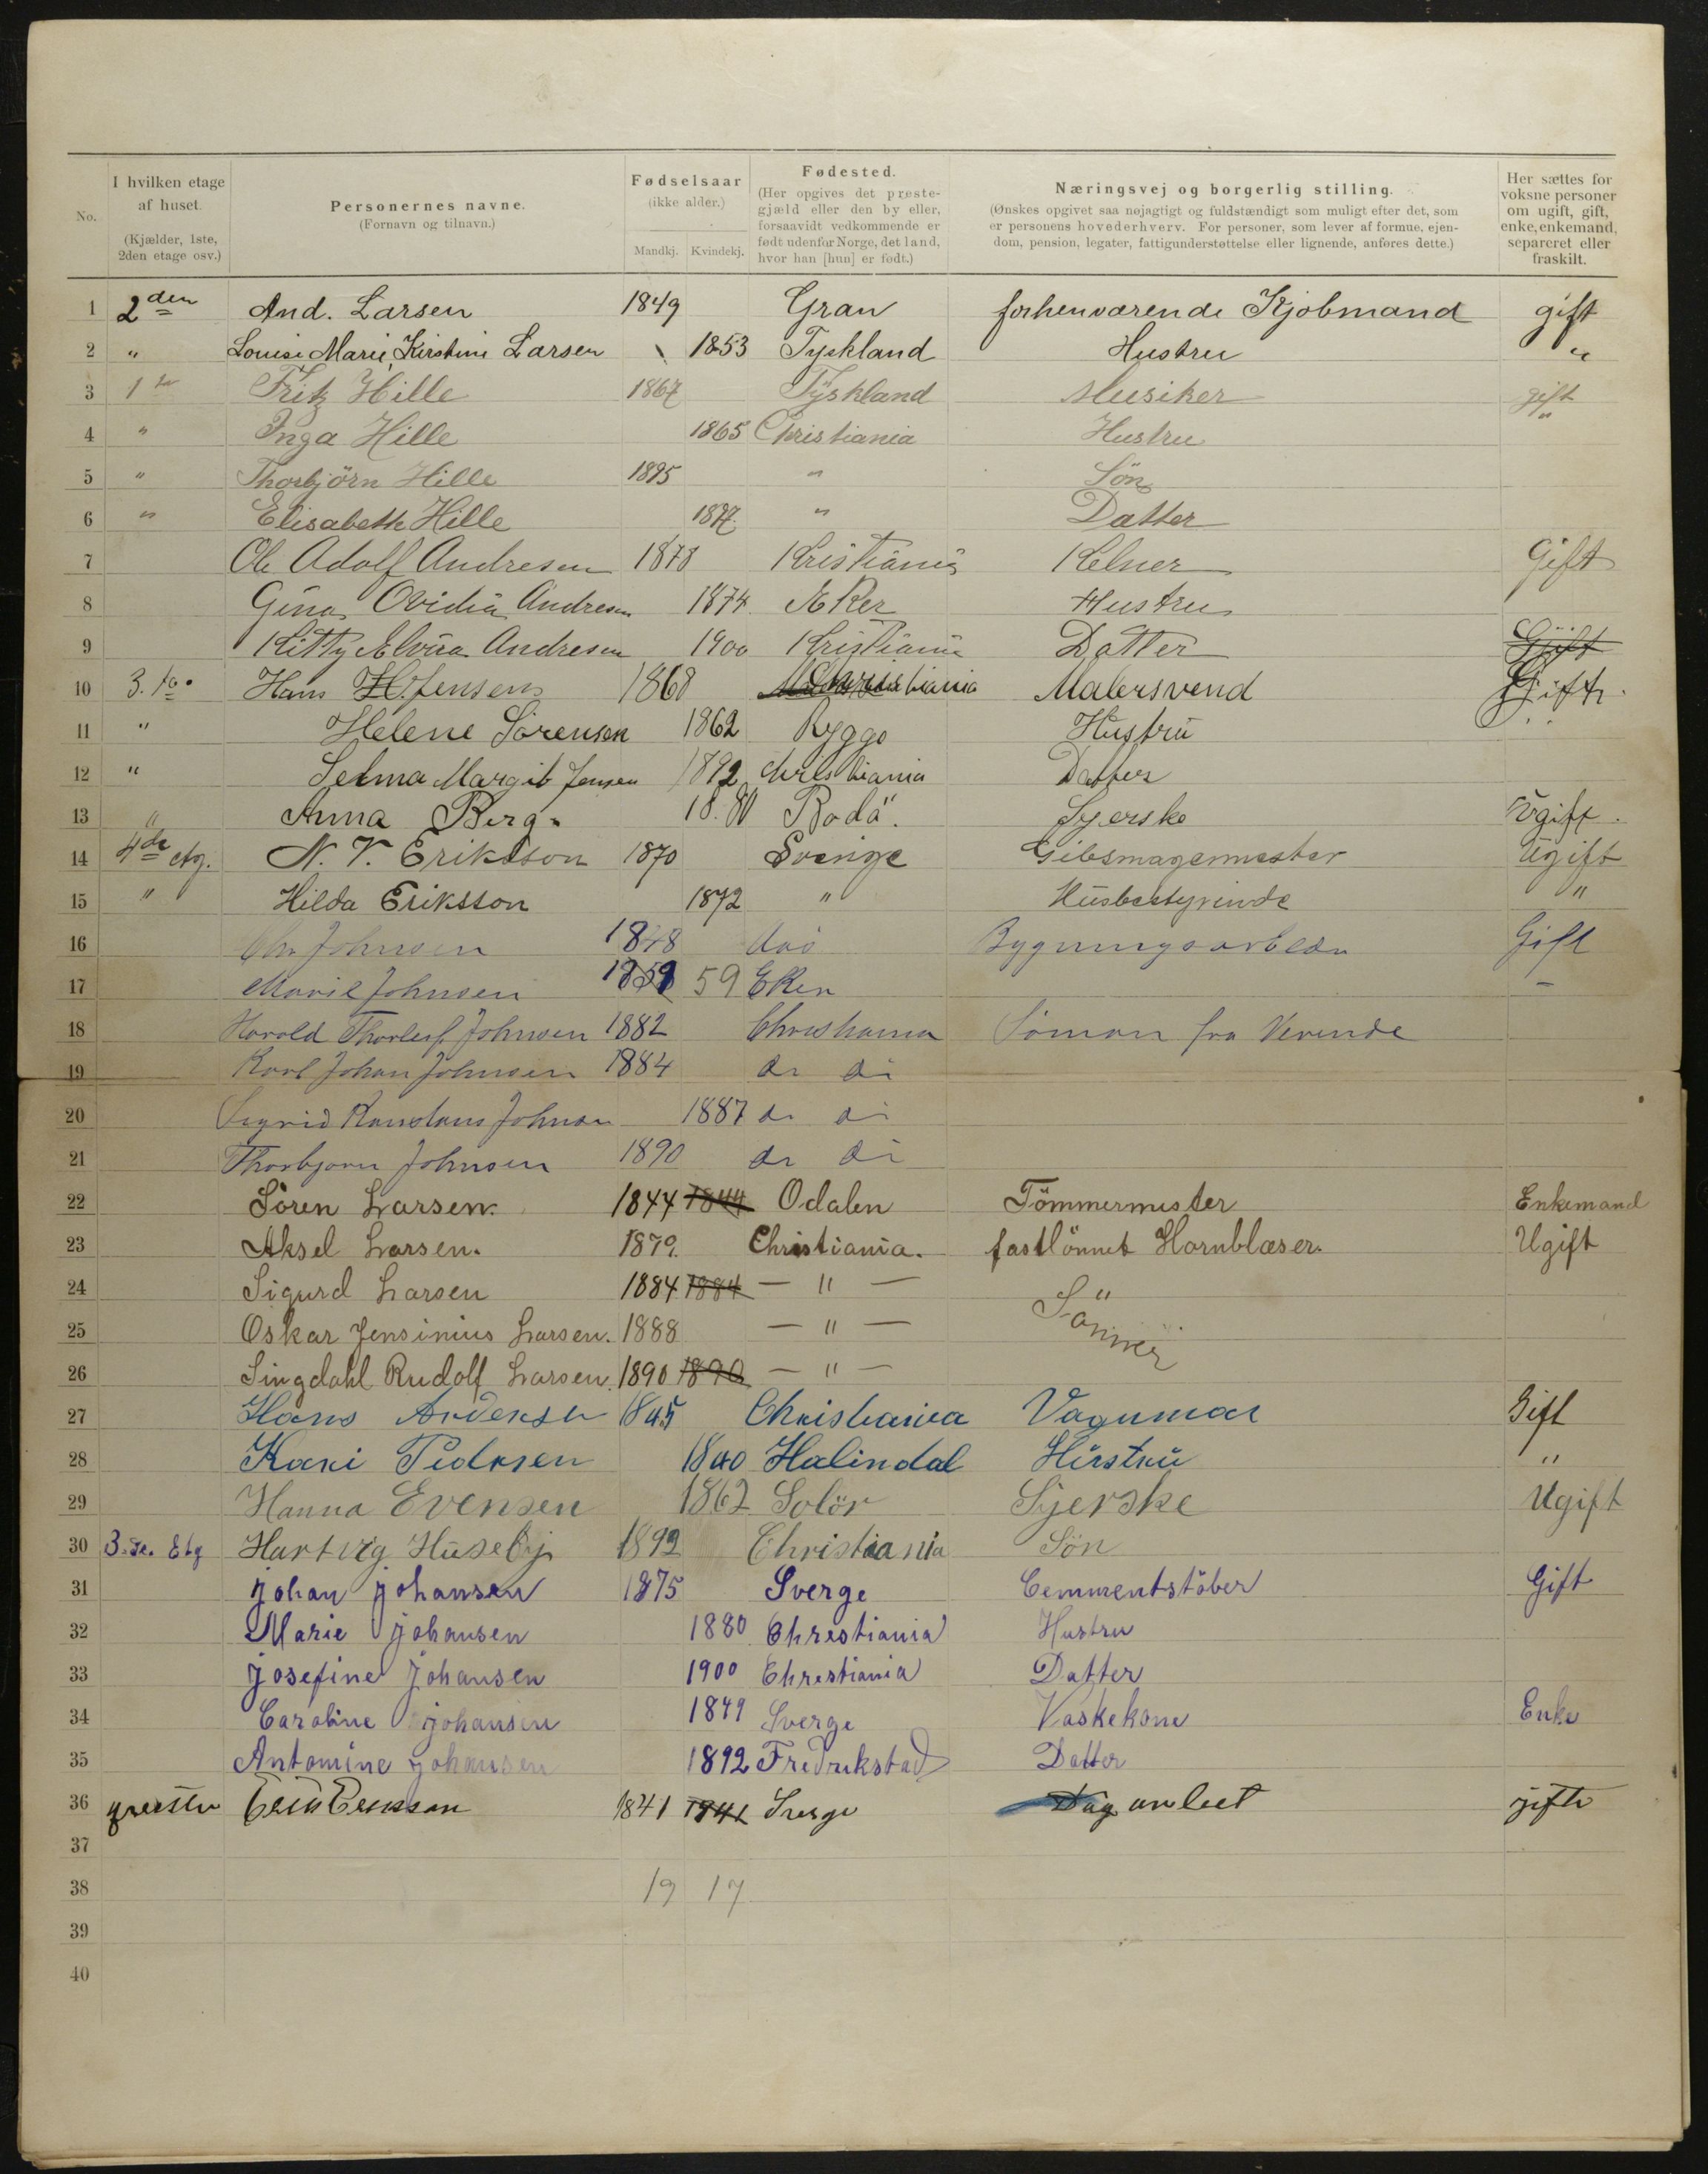 No.
I hvilken etage af huset. (Kjælder, 1ste, 2den etage osv.)
Personernes navne. (Fornavn og tilnavn.)
Fødselsaar (ikke alder.) Mandkj. Kvindekj.
Fødested. (Her opgives det prestegjæld eller den by eller, forsaavidt vedkommende er født udenfor Norge, det land, hvor han [hun] er født.)
Næringsvej og borgerlig stilling. (Ønskes opgivet saa nøjagtigt og fuldstændigt som muligt efter det, som er personens hovederhverv. For personer, som lever af formue, ejendom, pension, legater, fattigunderstøttelse eller lignende, anføres dette.)
Her sættes for voksne personer om ugift, gift, enke, enkemand, separeret eller fraskilt.
1 2den And. Larsen 1849 Gran forhenværende Kjöbmand gift
2 " Louise Marie Kirstine Larsen 1853 Tyskland Hustru "
3 1ste Fritz Hille 1867 Tyskland Musiker gift
4 " Inga Hille 1865 Christiania Hustru "
5 " Thorbjörn Hille 1895 " Sön
6 " Elisabeth Hille 1897 " Datter
7 Ole Adolf Andresen 1878 Kristiania Kelner Gift
8 Gina Ovidia Andresen 1874 Eker Hustru
9 Kitty Elvira Andresen 1900 Kristiania Datter Gift
10 3. Hans H. Jensen 1868 Christiania Malersvend Gift
11 " Helene Sörensen 1862 Rygge Hustru
12 " Selma Margit Jensen 1892 Christiania Datter
13 " Anna Berg 18.80 Syerske Ugift.
14 4de etg. N. V. Eriksson 1870 Sverige Gibsmagermester Ugift
15 " Hilda Eriksson 1872 " Husbestyrinde "
16 Chr Johnsen 1848 Bygningsarbeider Gift
17 Marie Johnsen 59 Eker -
18 Harald Thorleif Johnsen 1882 Christiania Söman fra
19 Karl Johan Johnsen 1884 do do
20 Sigrid Konstans Johnsen 1887 do do
21 Thorbjorn Johnsen 1890 do do
22 Sören Larsen. 1844 1844 Odalen Tömmermester Enkemand
23 Aksel Larsen. 1879. Christiania. fastlönnet Hornblæser. Ugift
24 Sigurd Larsen 1884 1884 — " —
25 Oskar Jensinius Larsen. 1888 — " — Sönner
26 Singdahl Rudolf Larsen. 1890 1890 — " —
27 Hans Andersen 1845 Christiania Vognman Gift
28 Kari Pedersen 1840 Halindal Hustru "
29 Hanna Evensen 1862 Solör Syerske Ugift
30 3.je. Etg Hartvig Huseby 1892 Christiania Sön
31 Johan Johansen 1875 Sverge Cemmentstöber Gift
32 Marie Johansen 1880 Chrestiania Hustru
33 Josefine Johansen 1900 Chrestiania Datter
34 Caroline Johansen 1849 Sverge Vaskekone Enke
35 Antomine Johansen 1892 Fredrikstad Datter
36 1841 1841 Sverge gifte
37
38 19 17
39
40